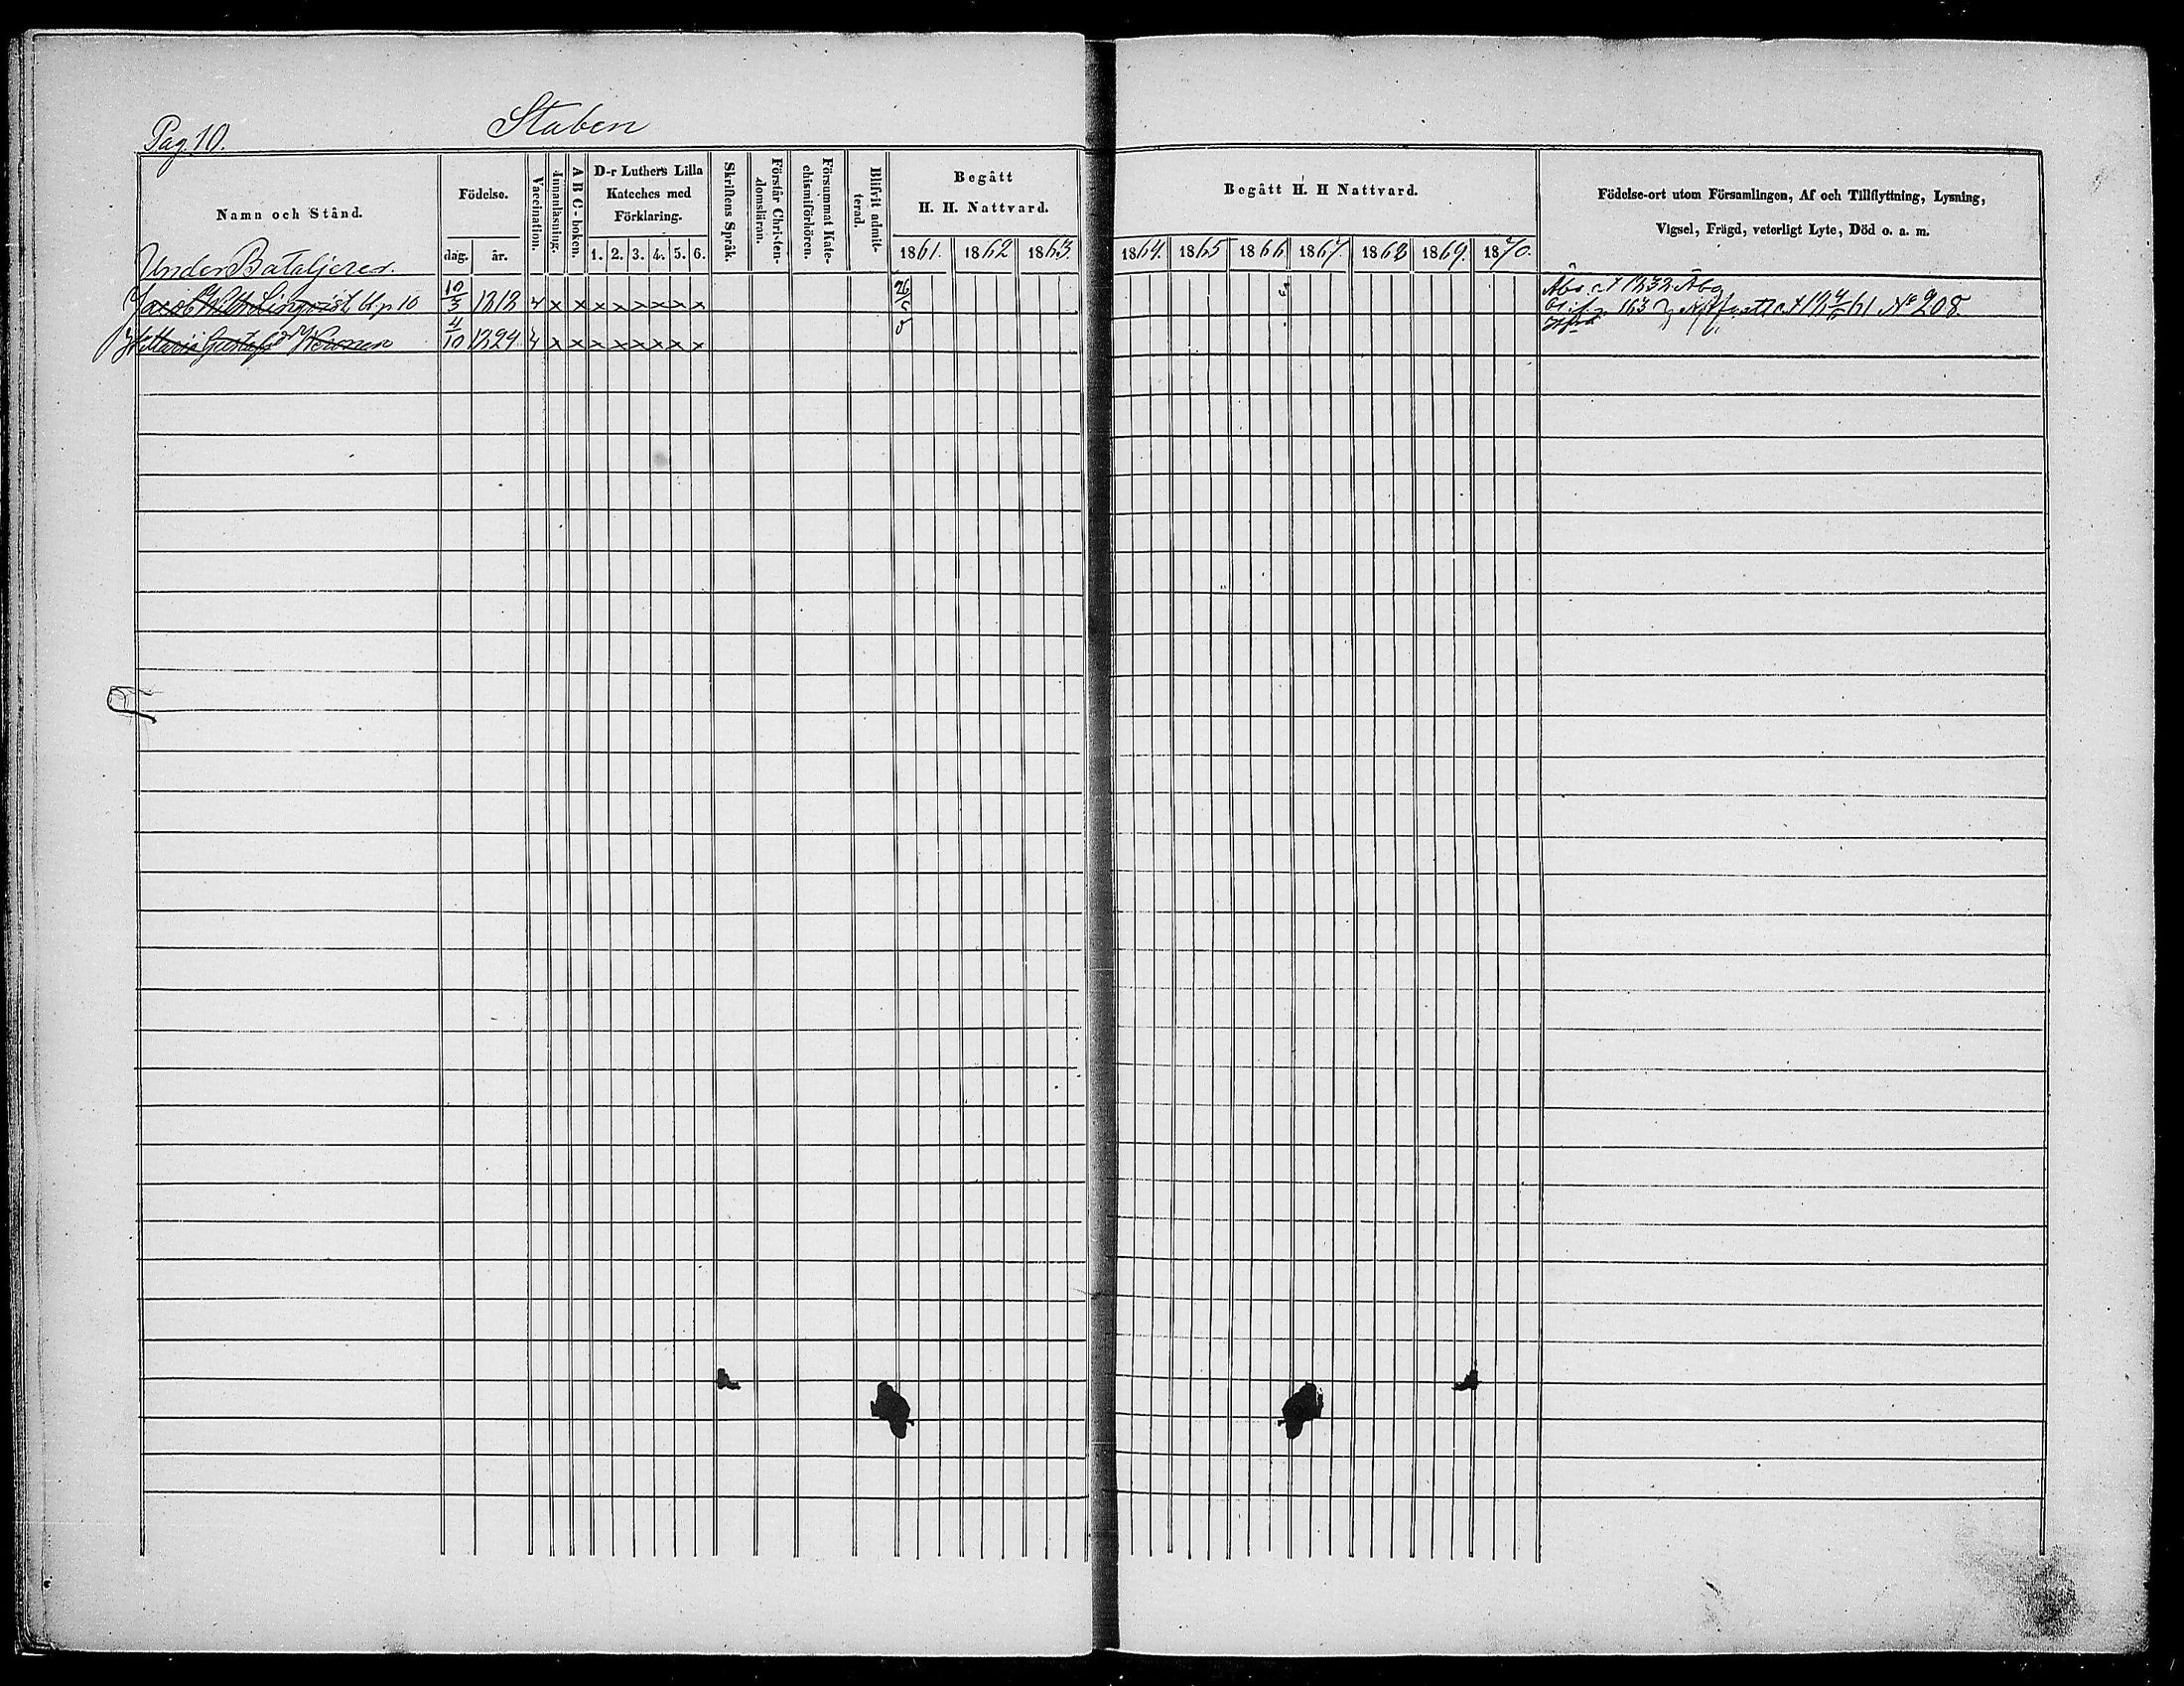 Pag. 10.
Staben
Namn och Stånd.
Födelse.
dag. år.
Vaccination.
Innanläsning.
A B C-boken.
D-r Luthers Lilla
Kateches med
Förklaring.
1. 2. 3. 4. 5. 6.
Skriftens Språk.
Förstår Christen-
domsläran.
Försummat Kate-
chismiförhören.
Blifvit admit-
terad.
Begått
H. H. Nattvard.
1861. 1862 1863.
Begått H. H Nattvard.
1864. 1865 1866 1867. 1868 1869. 1870.
Födelse-ort utom Församlingen, Af och Tillflyttning, Lysning,
Vigsel, Frägd, veterligt Lyte, Död o. a. m.
Under Bataljerer.
Jacob Linqvist 10 10/3 1818 x x x x x x x x 26/5 Åbo 1832
4/10 1824 x x x x x x x x 61 No 208